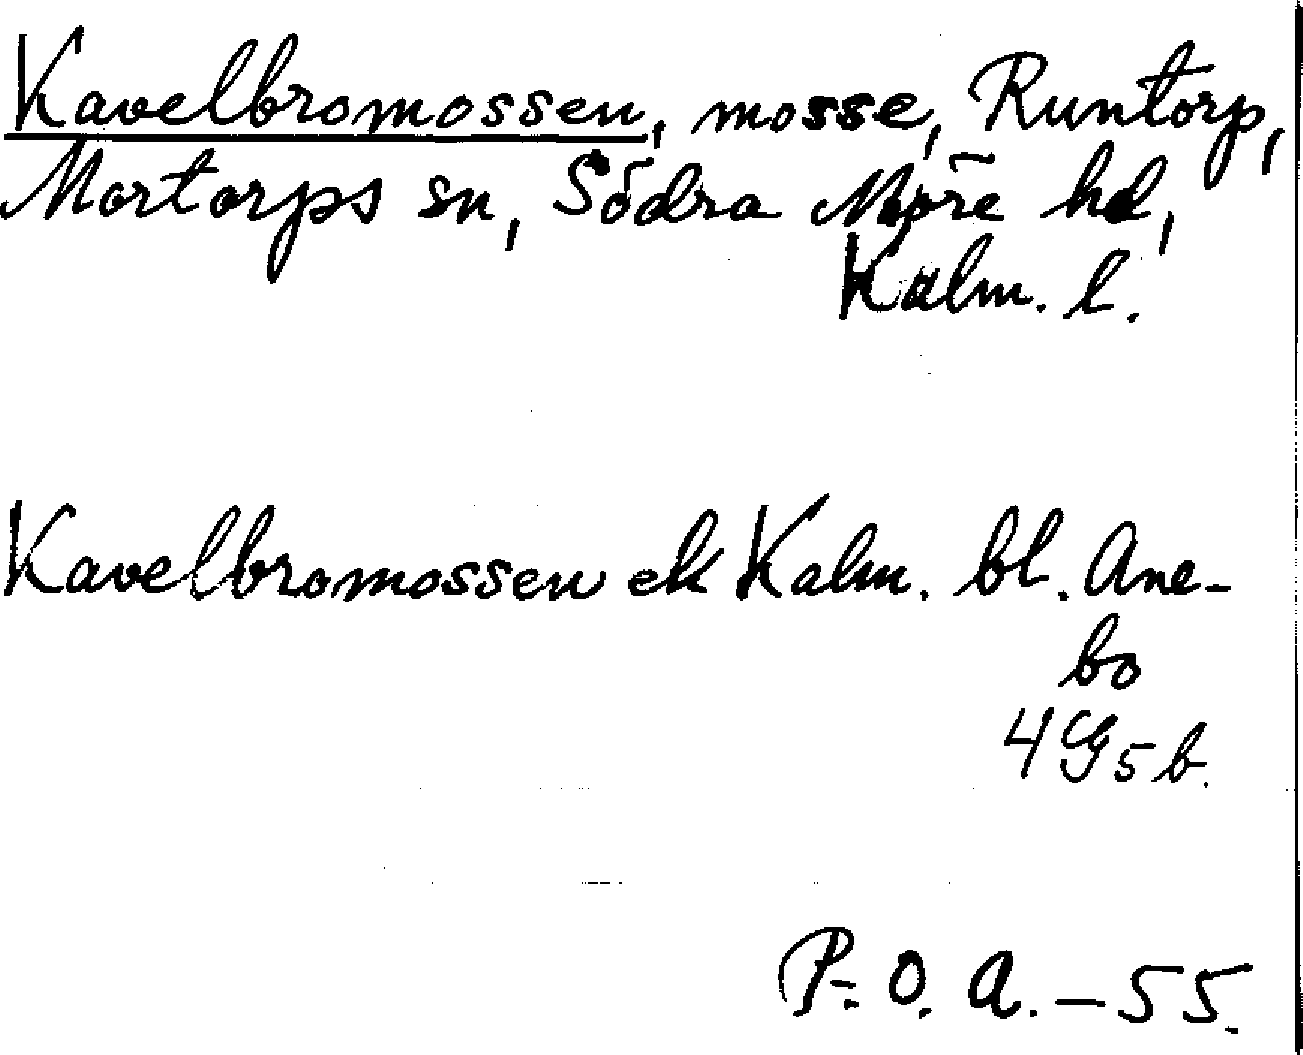 Kavelbromossen, mosse, Runtorp,
Mortorps sn, Södra Möre hd,
Kalm. l.
Kavelbromossen ek Kalm. bl. Ane-
bo
4G5b.
P.-O. A. – 55.